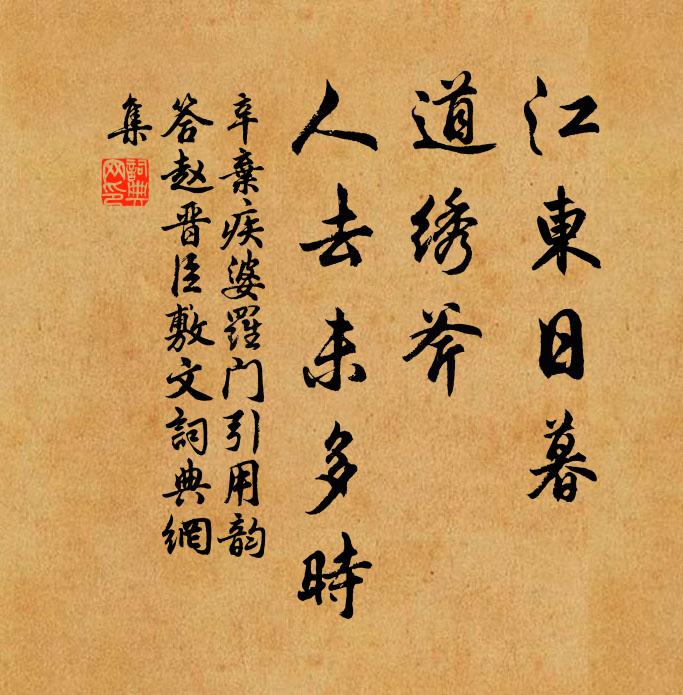 江東日暮
道绣斧
人去未多時
辛棄疾婆羅门引用韵
答赵晋臣敷文詞典網
集
詞典网印